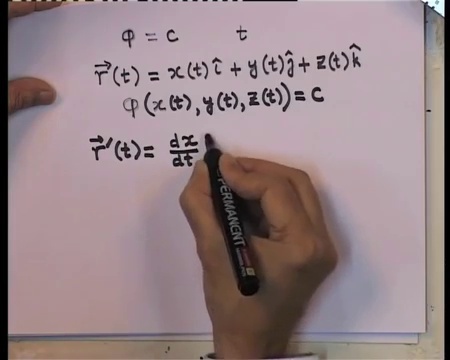 φ = c t
r⃗(t) = x(t)î + y(t)ĵ + z(t)k̂
φ(x(t), y(t), z(t)) = c
r⃗'(t) = dx/dt
PERMANENT